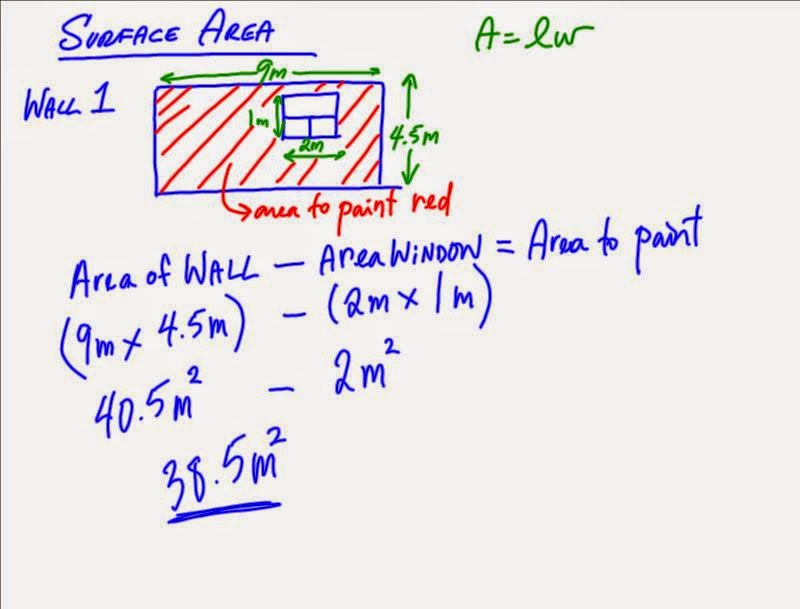 SURFACE AREA
A = lw
WALL 1
9m
1m
2m
4.5m
area to paint red
Area of WALL - Area WINDOW = Area to paint
(9m x 4.5m) - (2m x 1m)
40.5m² - 2m²
38.5m²